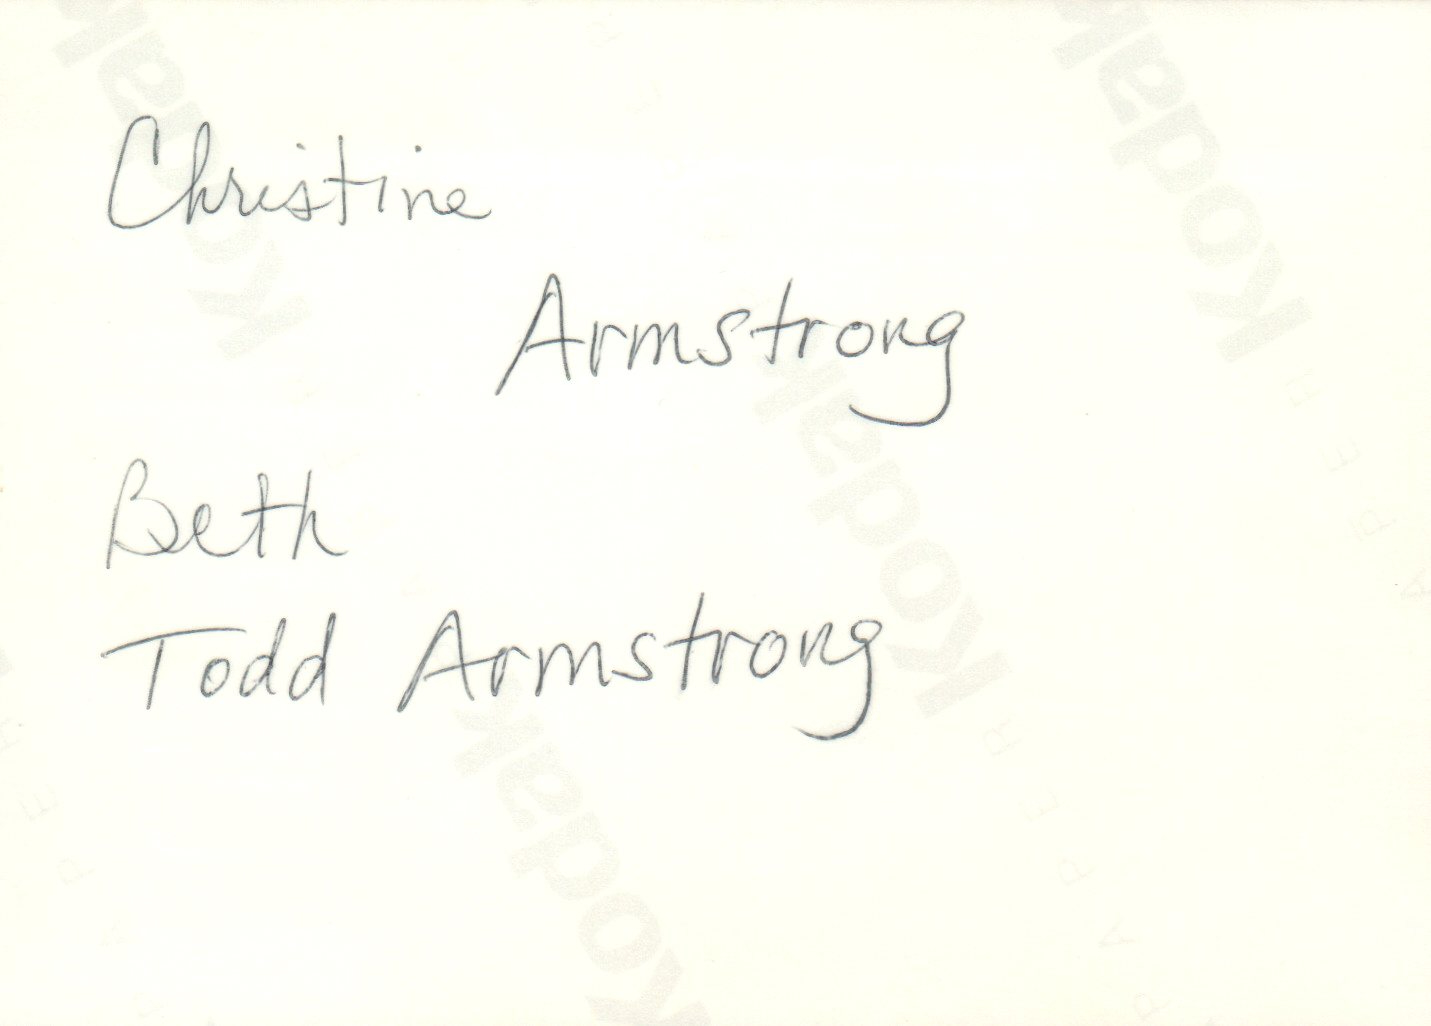 Christine
Armstrong
Beth
Todd Armstrong
Kodak
Kodak
Kodak
Kodak
PAPER
PAPER